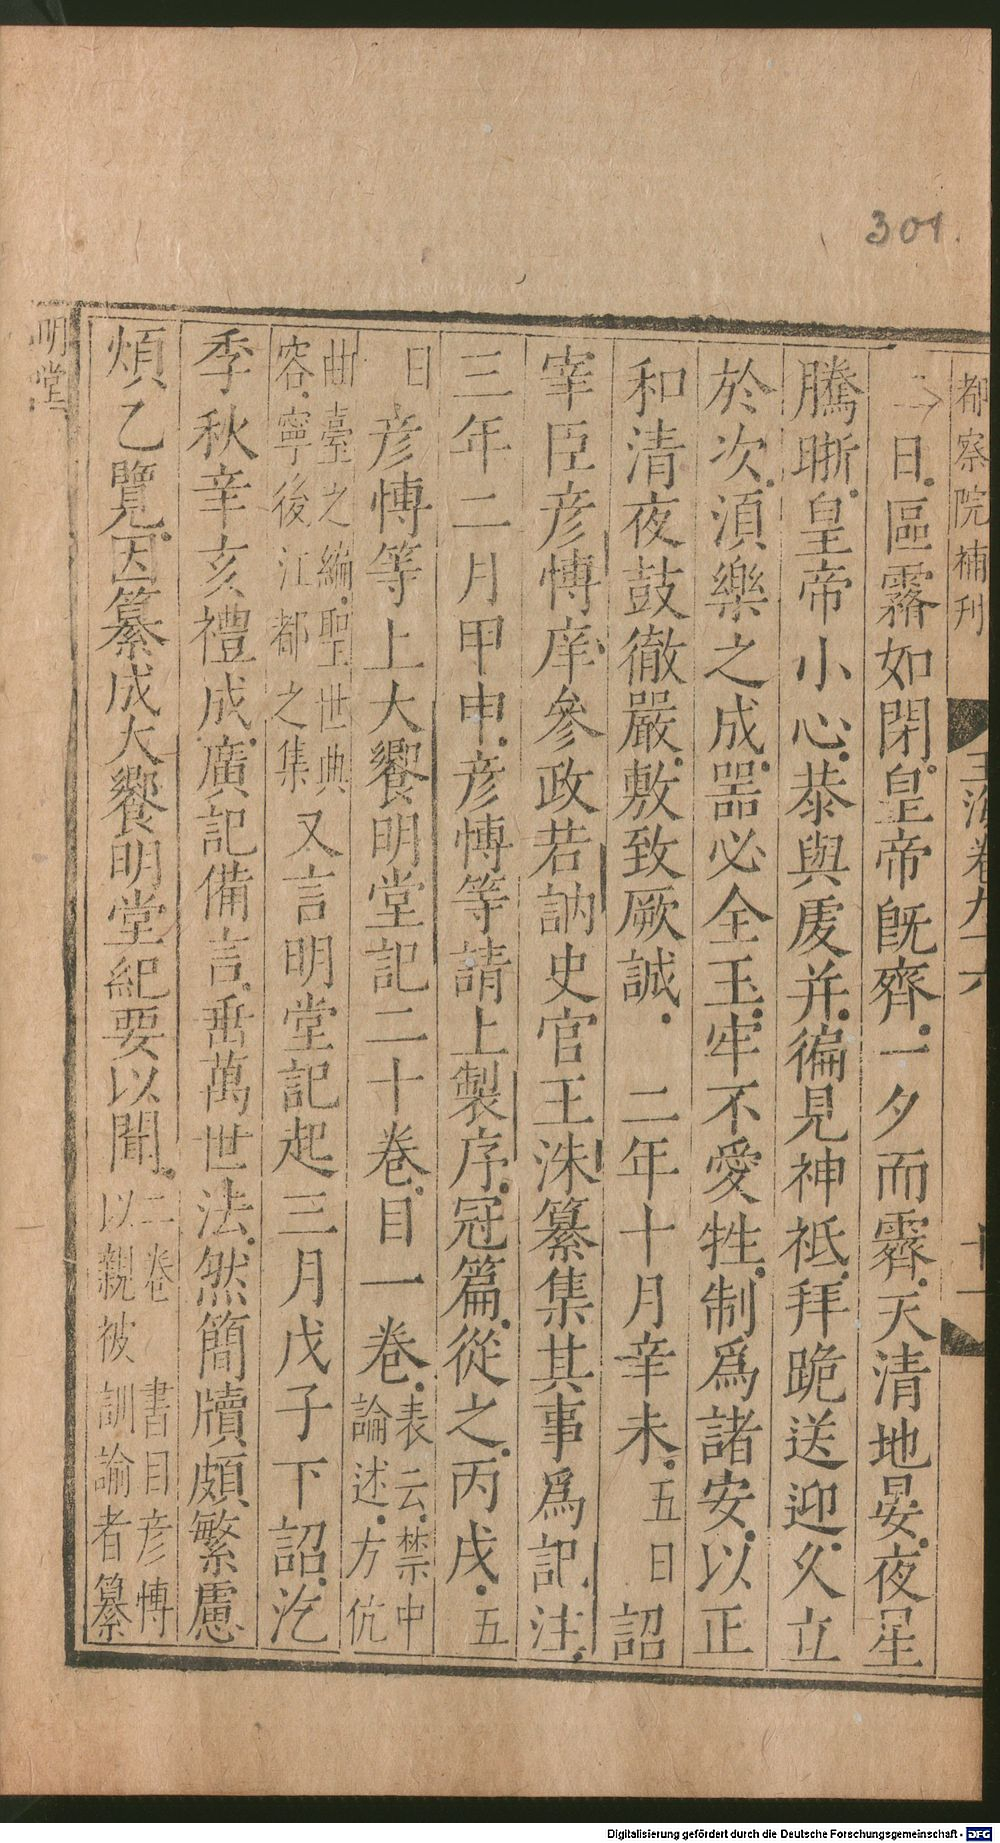 301.
都察院補刋
玉海卷九十六
十一
二日區霧如閉皇帝旣齊一夕而霽天清地晏夜星
騰晣皇帝小心恭與䖍并徧見神祇拜跪送迎久立
於次湏樂之成噐必全玉牢不愛牲制爲諸安以正
和清夜鼓徹嚴敷致厥誠 二年十月辛未五日詔
宰臣彦愽庠參政若訥史官王洙纂集其事爲記注
三年二月甲申彦愽等請上製序冠篇從之丙戌五
日彦愽等上大饗明堂記二十卷目一卷表云禁中
論述方伉
曲臺之編聖世典
容寧後江都之集又言明堂記起三月戊子下詔汔
季秋辛亥禮成廣記備言垂萬世法然簡牘頗繁慮
煩乙覽因纂成大饗明堂紀要以聞二卷 書目彦愽
以親被訓諭者纂
明堂
Digitalisierung gefördert durch die Deutsche Forschungsgemeinschaft - DFG